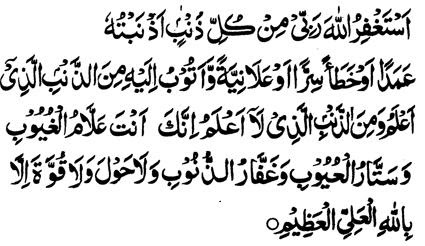 اَسْتَغْفِرُ اللهَ رَبِّىْ مِنْ كُلِّ ذَنْۢبٍ اَذْنَبْتُهٗ
عَمَدًا اَوْخَطَأً سِرًّا اَوْعَلَانِيَةً وَّاَتُوْبُ اِلَيْهِ مِنَ الذَّنْۢبِ الَّذِىْٓ
اَعْلَمُ وَمِنَ الذَّنْۢبِ الَّذِىْ لَآ اَعْلَمُ اِنَّكَ اَنْتَ عَلَّامُ الْغُيُوْبِ
وَسَتَّارُ الْعُيُوْبِ وَغَفَّارُ الذُّنُوْبِ وَلَاحَوْلَ وَلَاقُوَّةَ اِلَّا
بِاللهِ الْعَلِىِّ الْعَظِيْمِ ○